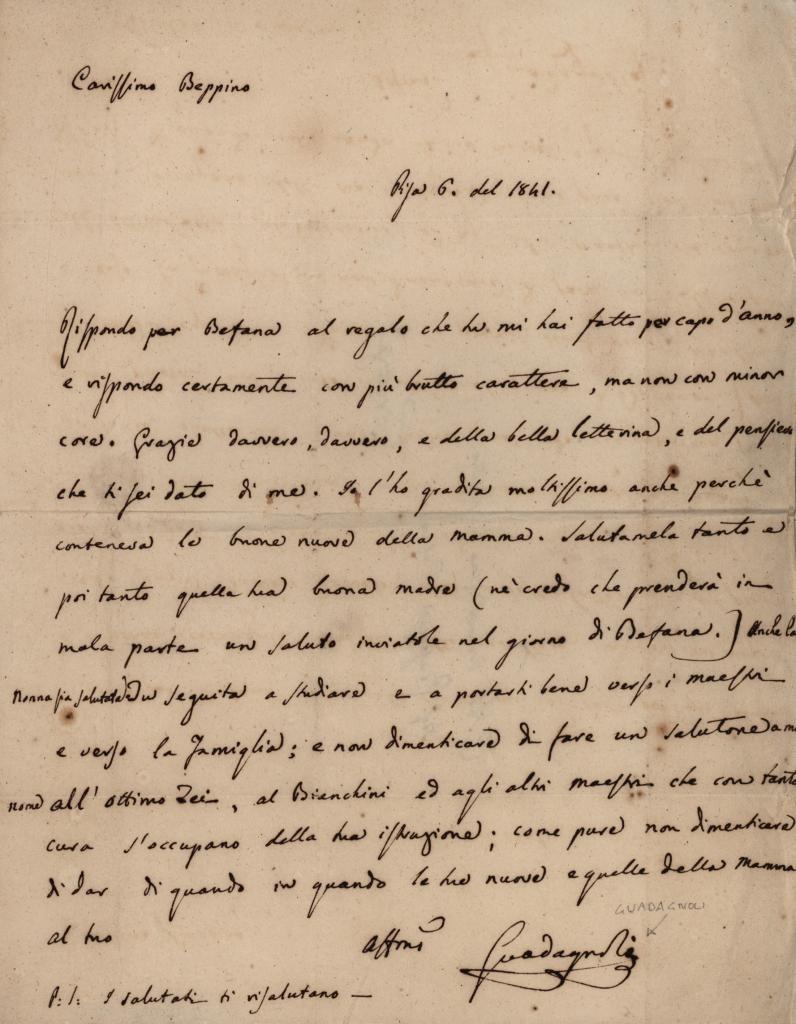 Carissimo Beppino
Pisa 6. del 1841.
Rispondo per Befana al regalo che tu mi hai fatto per capo d'anno,
e rispondo certamente con più brutto carattere, ma non con minor
core. Grazie davvero, davvero, e della bella letterina, e del pensiero
che ti sei dato di me. Io l'ho gradita moltissimo anche perchè
conteneva le buone nuove della mamma. Salutamela tanto e
poi tanto quella tua buona madre (nè credo che prenderà in
mala parte un saluto inviatole nel giorno di Befana.) Anche la
Nonna sia salutata. Tu seguita a studiare e a portarti bene verso i maestri
e verso la Famiglia; e non dimenticare di fare un salutone a mio
nome all'ottimo Zei, al Bianchini ed agli altri maestri che con tanta
cura s'occupano della tua istruzione; come pure non dimenticare
di dar di quando in quando le tue nuove e quelle della mamma
al tuo
Affmo Guadagnoli
GUADAGNOLI
P: S: I salutati ti risalutano —